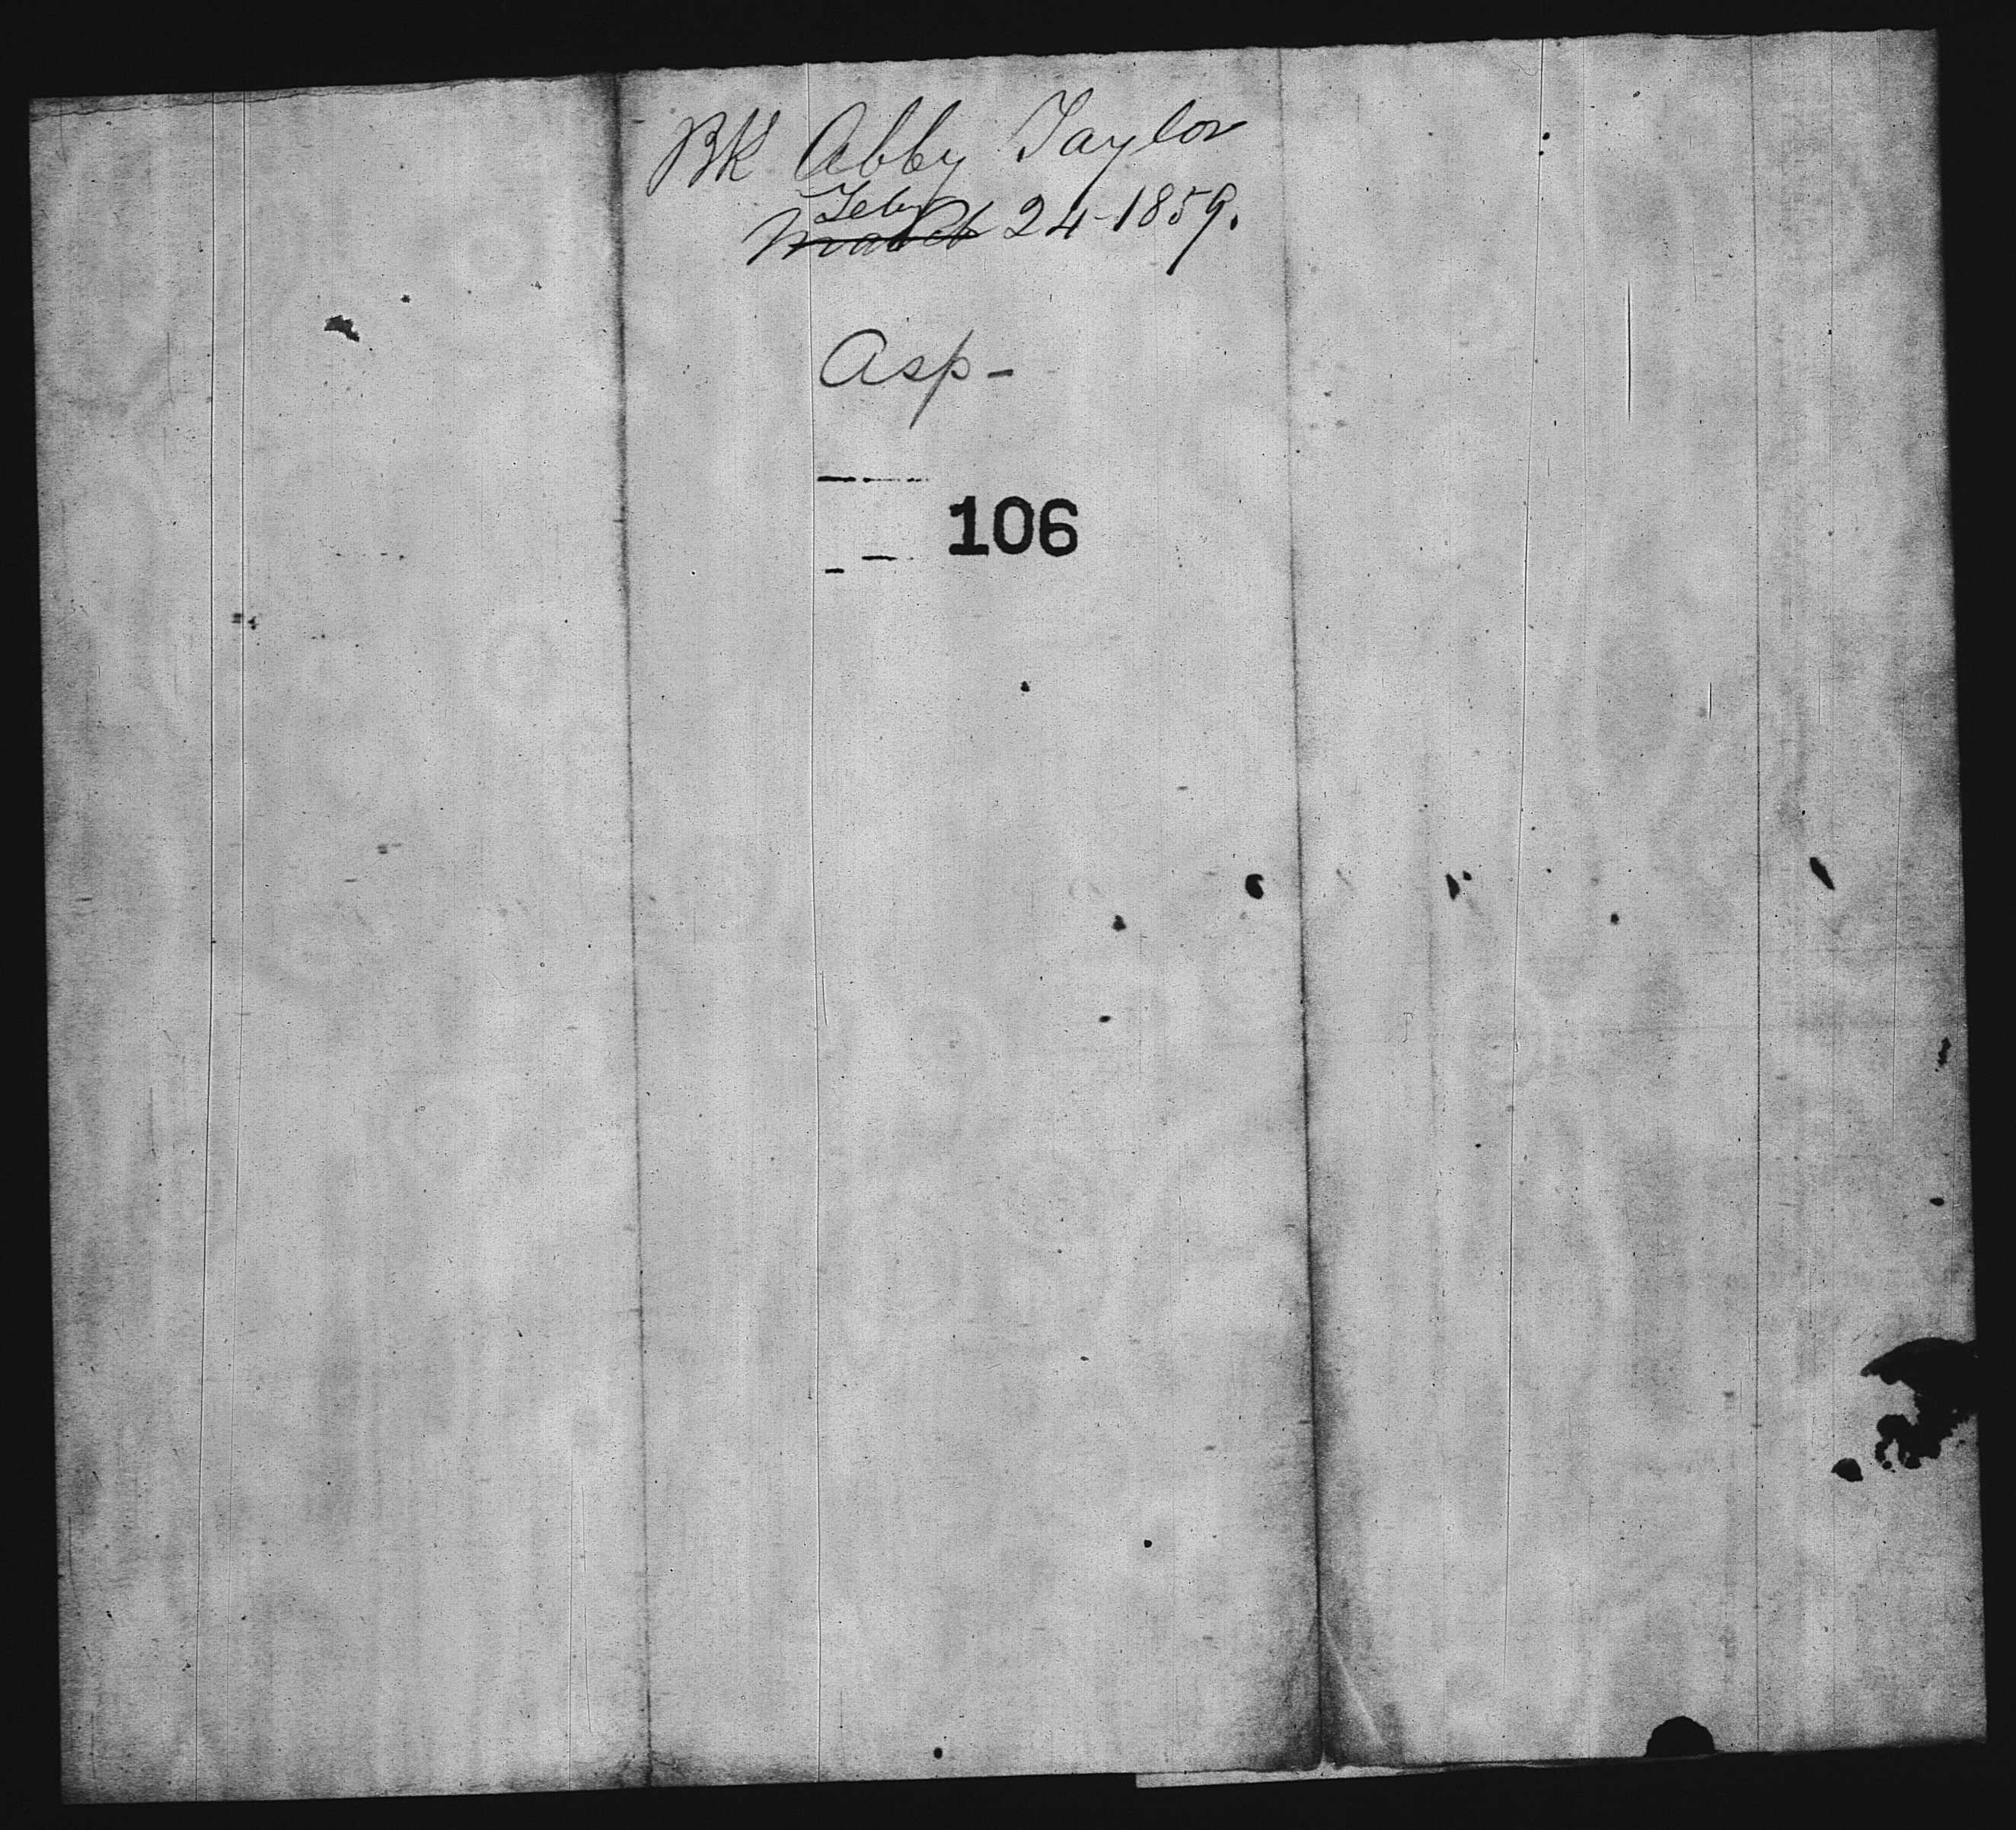 Bk Abby Taylor
Feby
March 24-1859.
Asp-
106